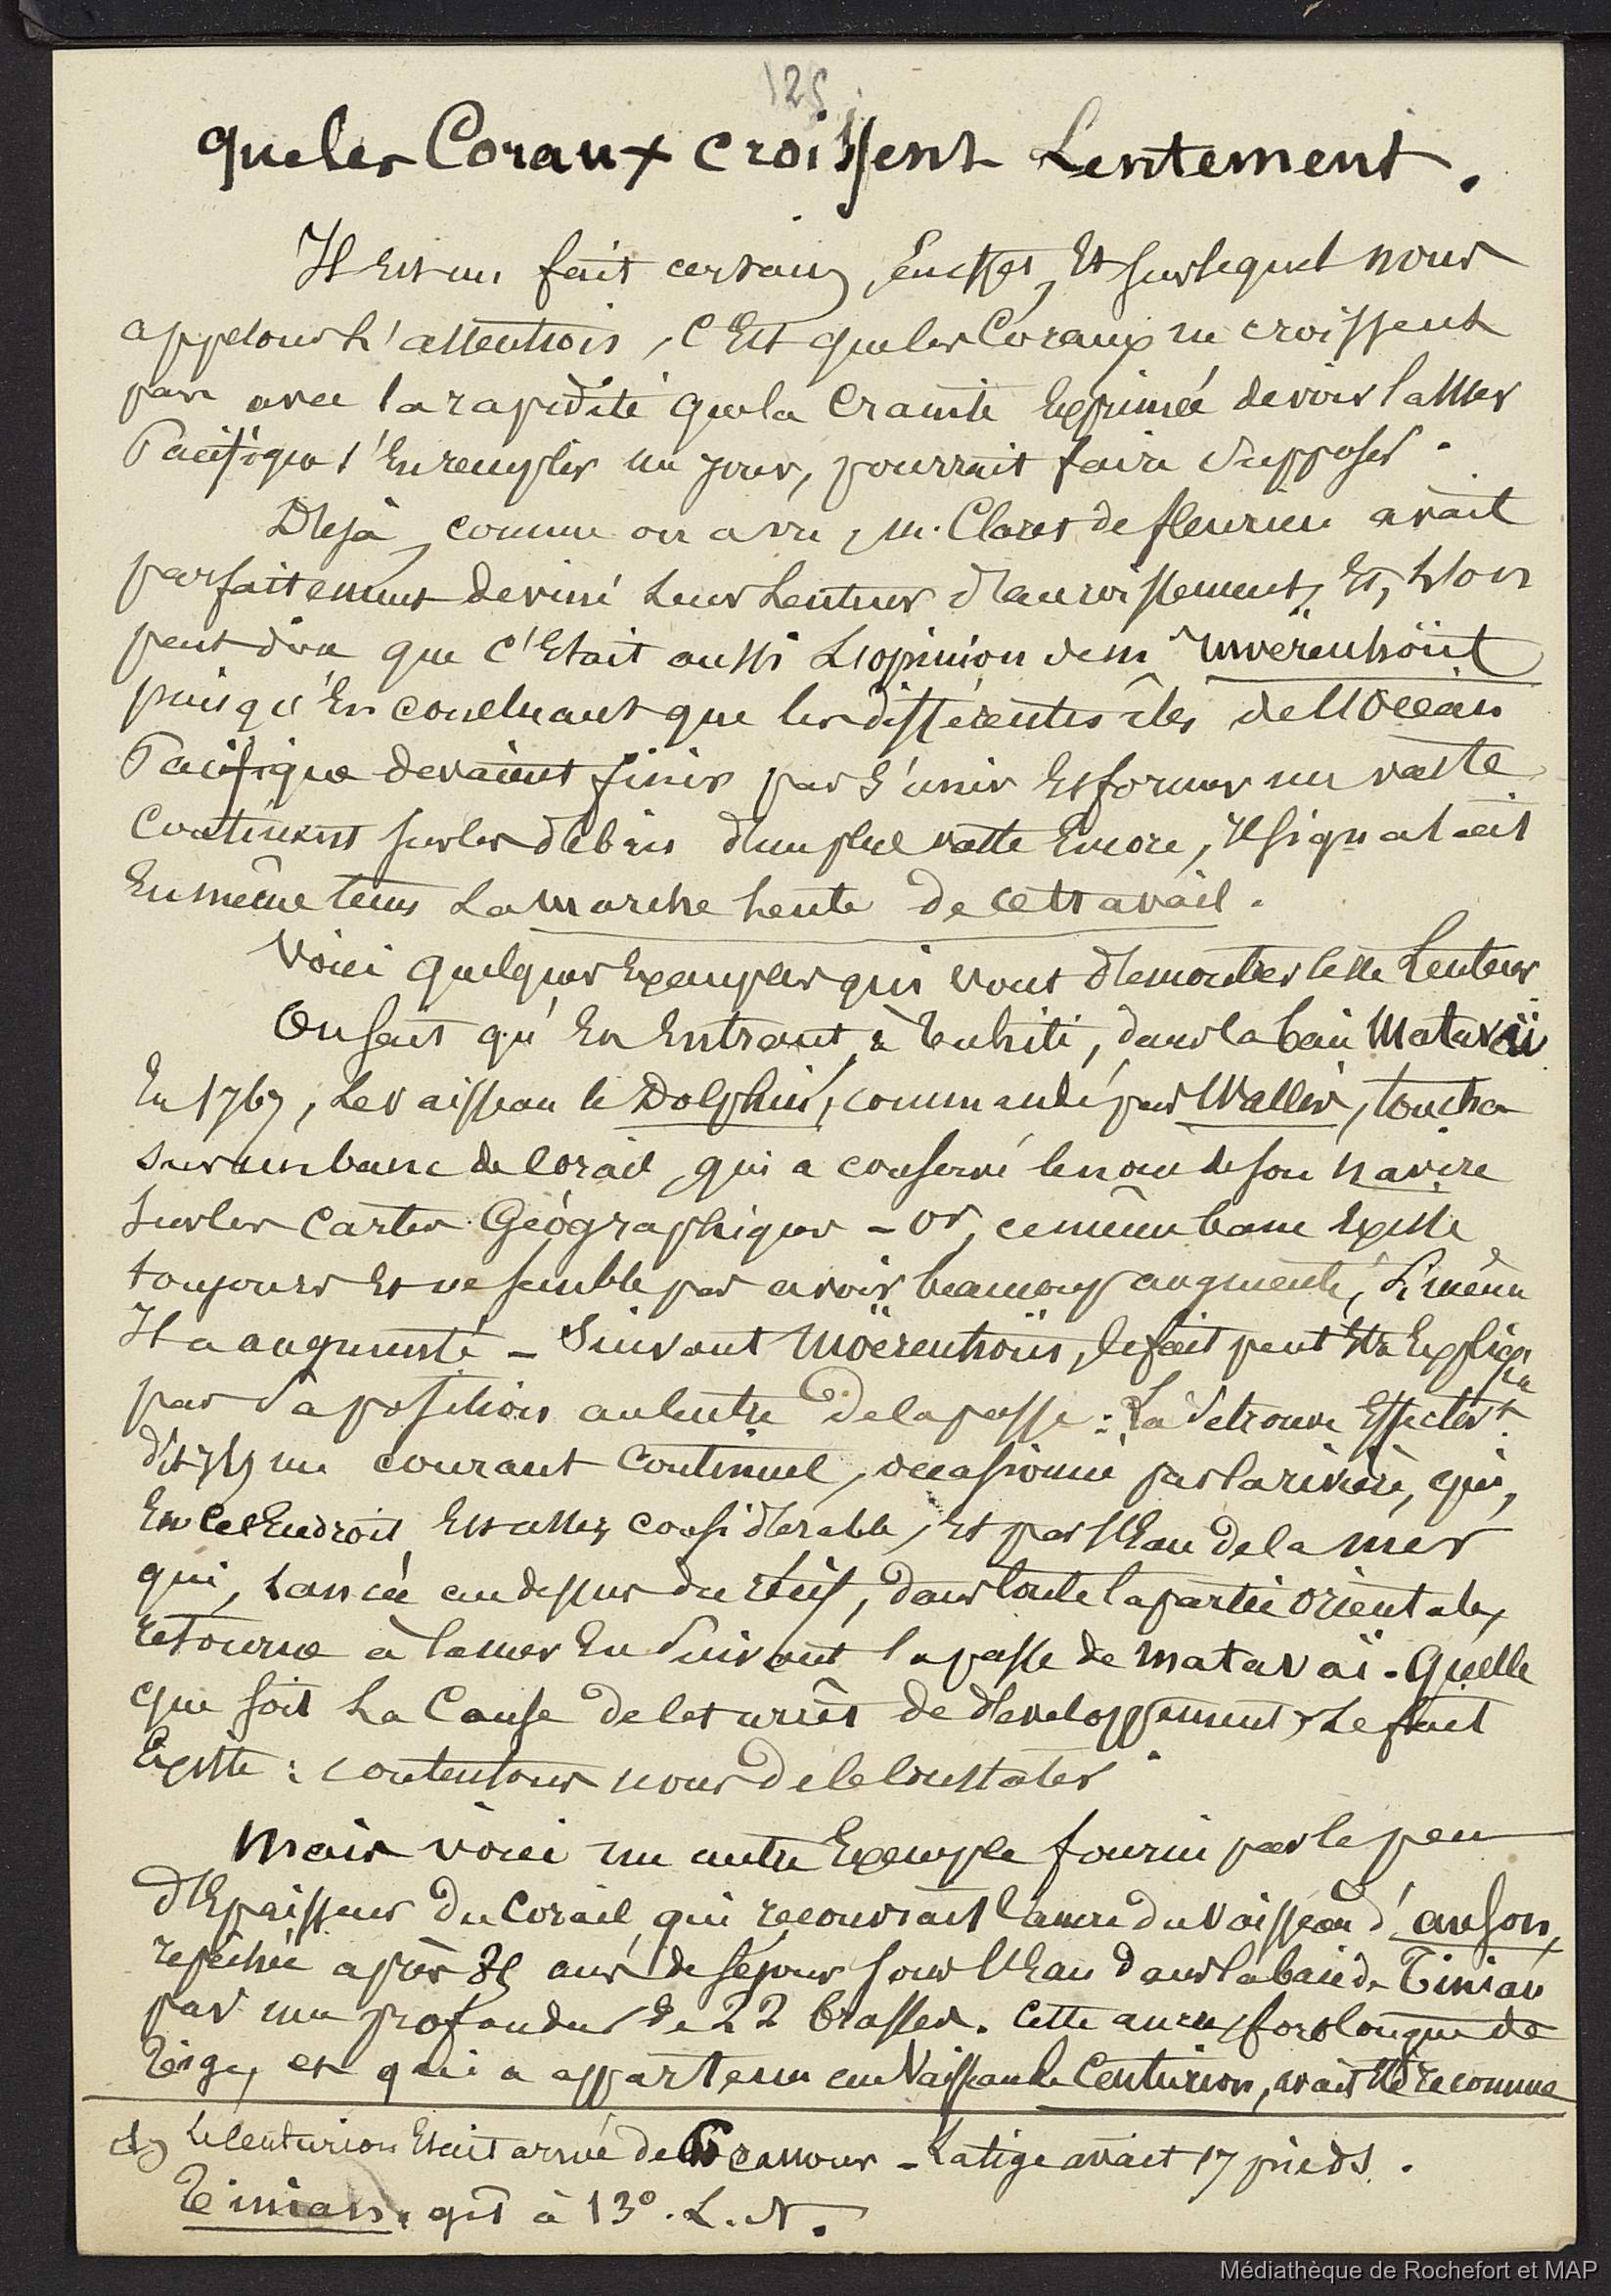 125
que les Coraux croissent Lentement.
Il Est un fait certain, en effet, Et sur lequel nous
appelons L'attention, C'Est que les Coraux ne croissent
pas avec la rapidité que la Crainte Exprimée de voir la Mer
Pacifique s'En remplir un jour, pourrait faire Supposer.
Déjà, comme on a vu, M. Claret de fleurieu avait
parfaitement deviné Leur Lenteur d'accroissement, Et, L'on
peut dire que C'Etait aussi L'opinion de m Moërenhoüt
puisqu'En concluant que les différentes îles de l'Océan
Pacifique devaient finir par s'unir Et former un vaste
Continent sur les débris d'un plus vaste Encore, Il signalait
En même tems La marche Lente de ce travail.
Voici quelques Exemples qui vont démontrer cette Lenteur
On sait qu'En Entrant, à Tahiti, dans la baie Matavaï
En 1767, Le vaisseau le Dolphin, commandé par Wallis, toucha
sur un banc de Corail, qui a conservé le nom de son navire
sur les Cartes Géographiques - or, ce même banc Existe
toujours Et ne semble pas avoir beaucoup augmenté, Si même
Il a augmenté - Suivant Moërenhoüt, le fait peut Etre Expliqué
par Sa position au Centre De la passe : Là Se trouve Effectivt.
dit-il, un courant Continuel, occasionné par la rivière, qui,
En Cet Endroit, Est assez considérable, Et par l'Eau de la mer
qui, Lancée au dessus du récif, dans toute la partie orientale,
retourne à la mer En Suivant la passe de matavaï. Quelle
que soit La Cause De Cet arrêt de développement, Le fait
Existe : contentons nous De le Constater.
Mais voici un autre Exemple fourni par le peu
d'Epaisseur Du Corail, qui recouvrait l'ancre du Vaisseau d'anson,
repêchée après 85 ans de séjour sous l'Eau dans la baie de Tinian
par une profondeur de 22 brasses. Cette ancre, fort longue de
tige, et qui a appartenu au Vaisseau le Centurion, avait Eté reconnue
Le Centurion Etait armé de 60 canons - La tige avait 17 pieds.
Tinian, gît à 13°. L. N.
Médiathèque de Rochefort et MAP